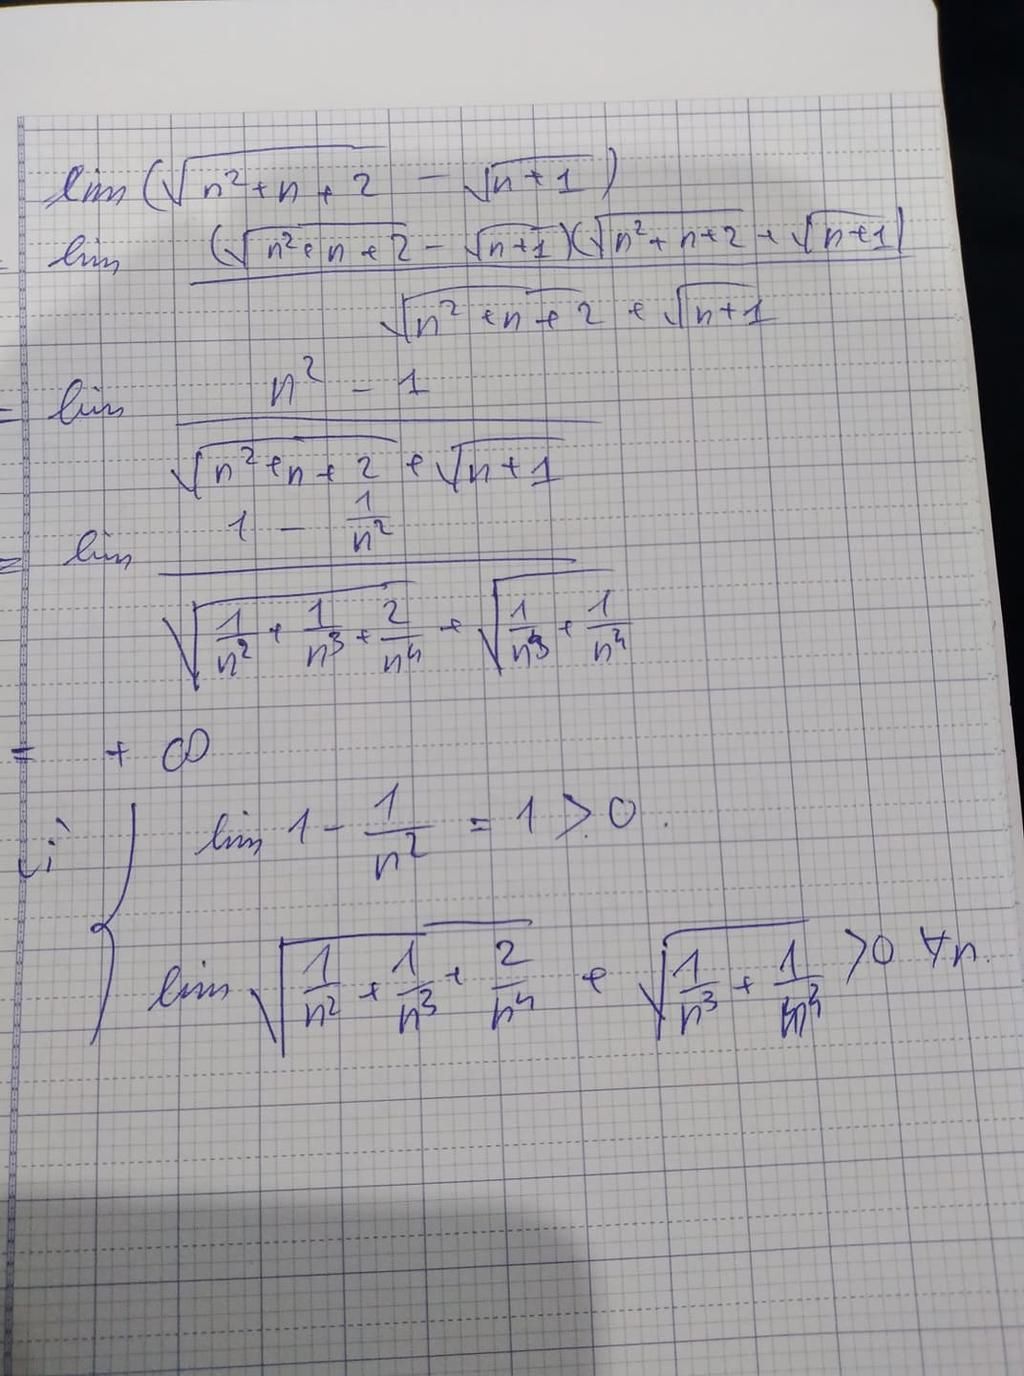 lim (√(n² + n + 2) − √(n + 1))
= lim ((√(n² + n + 2) − √(n+1))(√(n² + n + 2) + √(n+1))) / (√(n² + n + 2) + √(n+1))
= lim (n² − 1) / (√(n² + n + 2) + √(n+1))
= lim (1 − 1/n²) / (√(1/n² + 1/n³ + 2/n⁴) + √(1/n³ + 1/n⁴))
= + ∞
Vì { lim 1 − 1/n² = 1 > 0.
lim √(1/n² + 1/n³ + 2/n⁴) + √(1/n³ + 1/n⁴) > 0 ∀n.